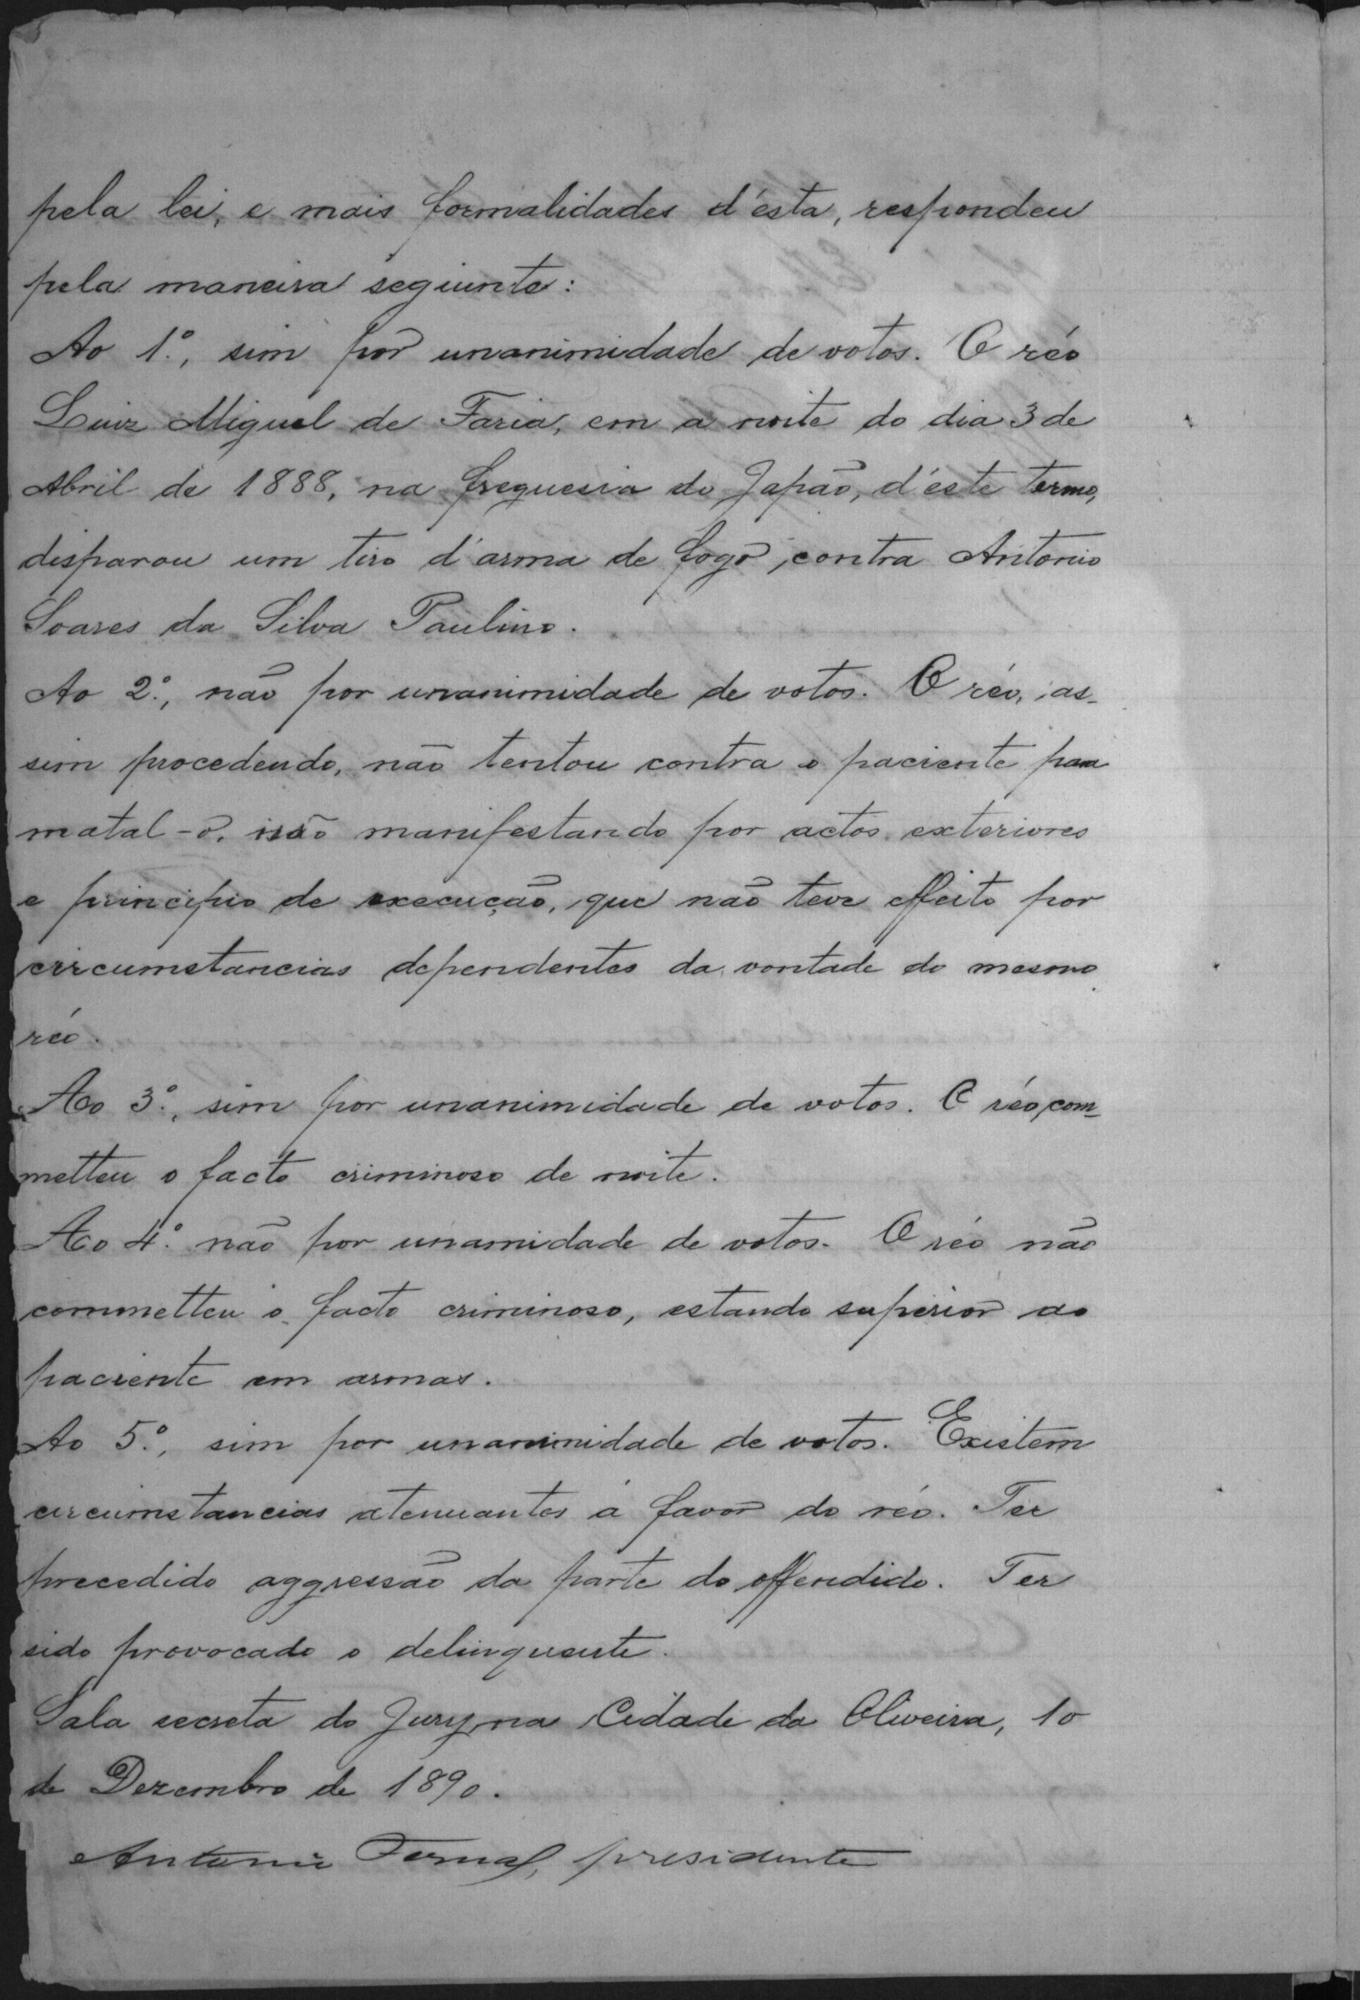 pela lei, e mais formalidades d'ésta, respondeu
pela maneira seguinte:
Ao 1º, sim por unanimidade de votos. O réo
Luiz Miguel de Faria, em a noite do dia 3 de
Abril de 1888, na freguesia do Japão, d'éste termo,
disparou um tiro d'arma de fogo, contra Antonio
Soares da Silva Paulino.
Ao 2º, não por unanimidade de votos. O réo, as-
sim procedendo, não tentou contra o paciente para
matal-o, não manifestando por actos exteriores
e principio de execução, que não teve effeito por
circumstancias dependentes da vontade do mesmo
réo.
Ao 3º, sim por unanimidade de votos. O réo, com-
metteu o facto criminoso de noite.
Ao 4º não por unamidade de votos. O réo não
commetteu o facto criminoso, estando superior ao
paciente em armas.
Ao 5º, sim por unanimidade de votos. Existem
circumstancias atenuantes á favor do réo. Ter
precedido aggressão da parte do offendido. Ter
sido provocado o delinquente.
Sala secreta do Jury, na Cidade da Oliveira, 10
de Dezembro de 1890.
Antonio presidente